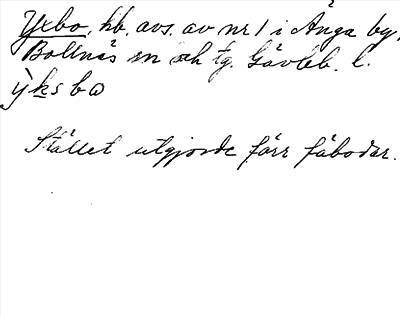 Yxbo, hb. avs. av nr 1 i Ånga by,
Bollnäs sn och tg. Gävleb. l.
y̍ksbω
Stället utgjorde förr fäbodar.